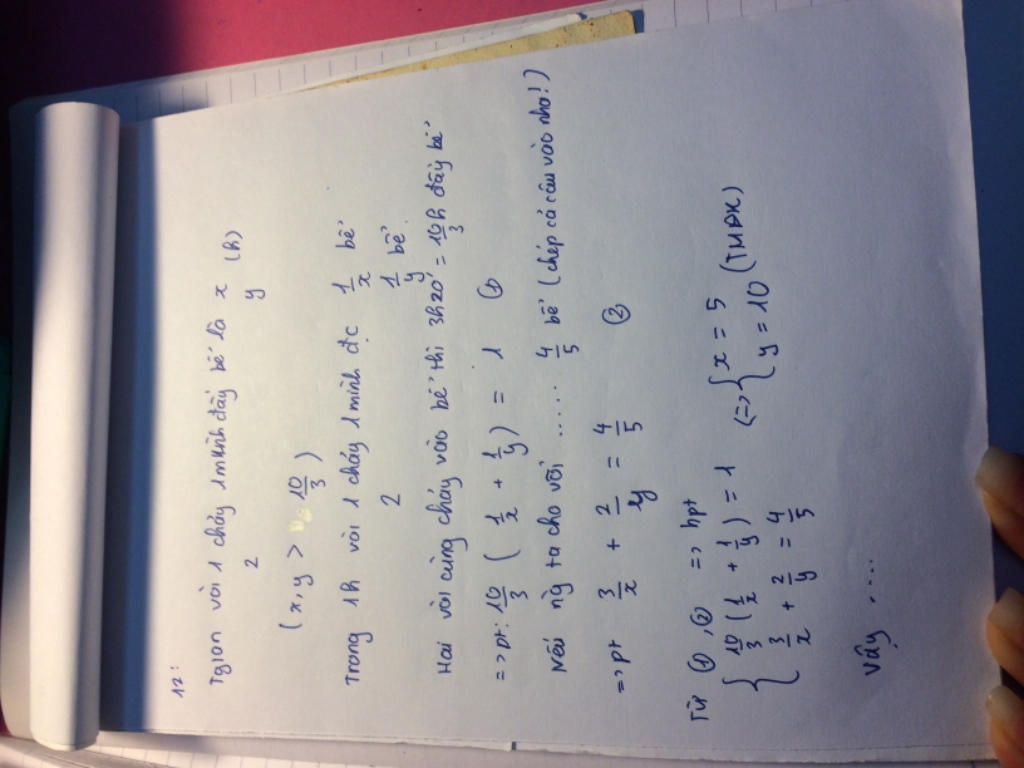 12:
Tgian vòi 1 chảy 1 mình đầy bể là x (h)
2 y
(x, y > 10/3)
Trong 1h vòi 1 chảy 1 mình đc 1/x bể
2 1/y bể
Hai vòi cùng chảy vào bể thì 3h20' = 10/3 h đầy bể
=> pt: 10/3 (1/x + 1/y) = 1 ①
Nếu ng ta cho vòi ..... 4/5 bể (chép cả câu vào nha!)
=> pt 3/x + 2/y = 4/5 ②
Từ ①, ② => hpt
{ 10/3 (1/x + 1/y) = 1 (=> { x = 5
{ 3/x + 2/y = 4/5 { y = 10 (TMĐK)
Vậy ....